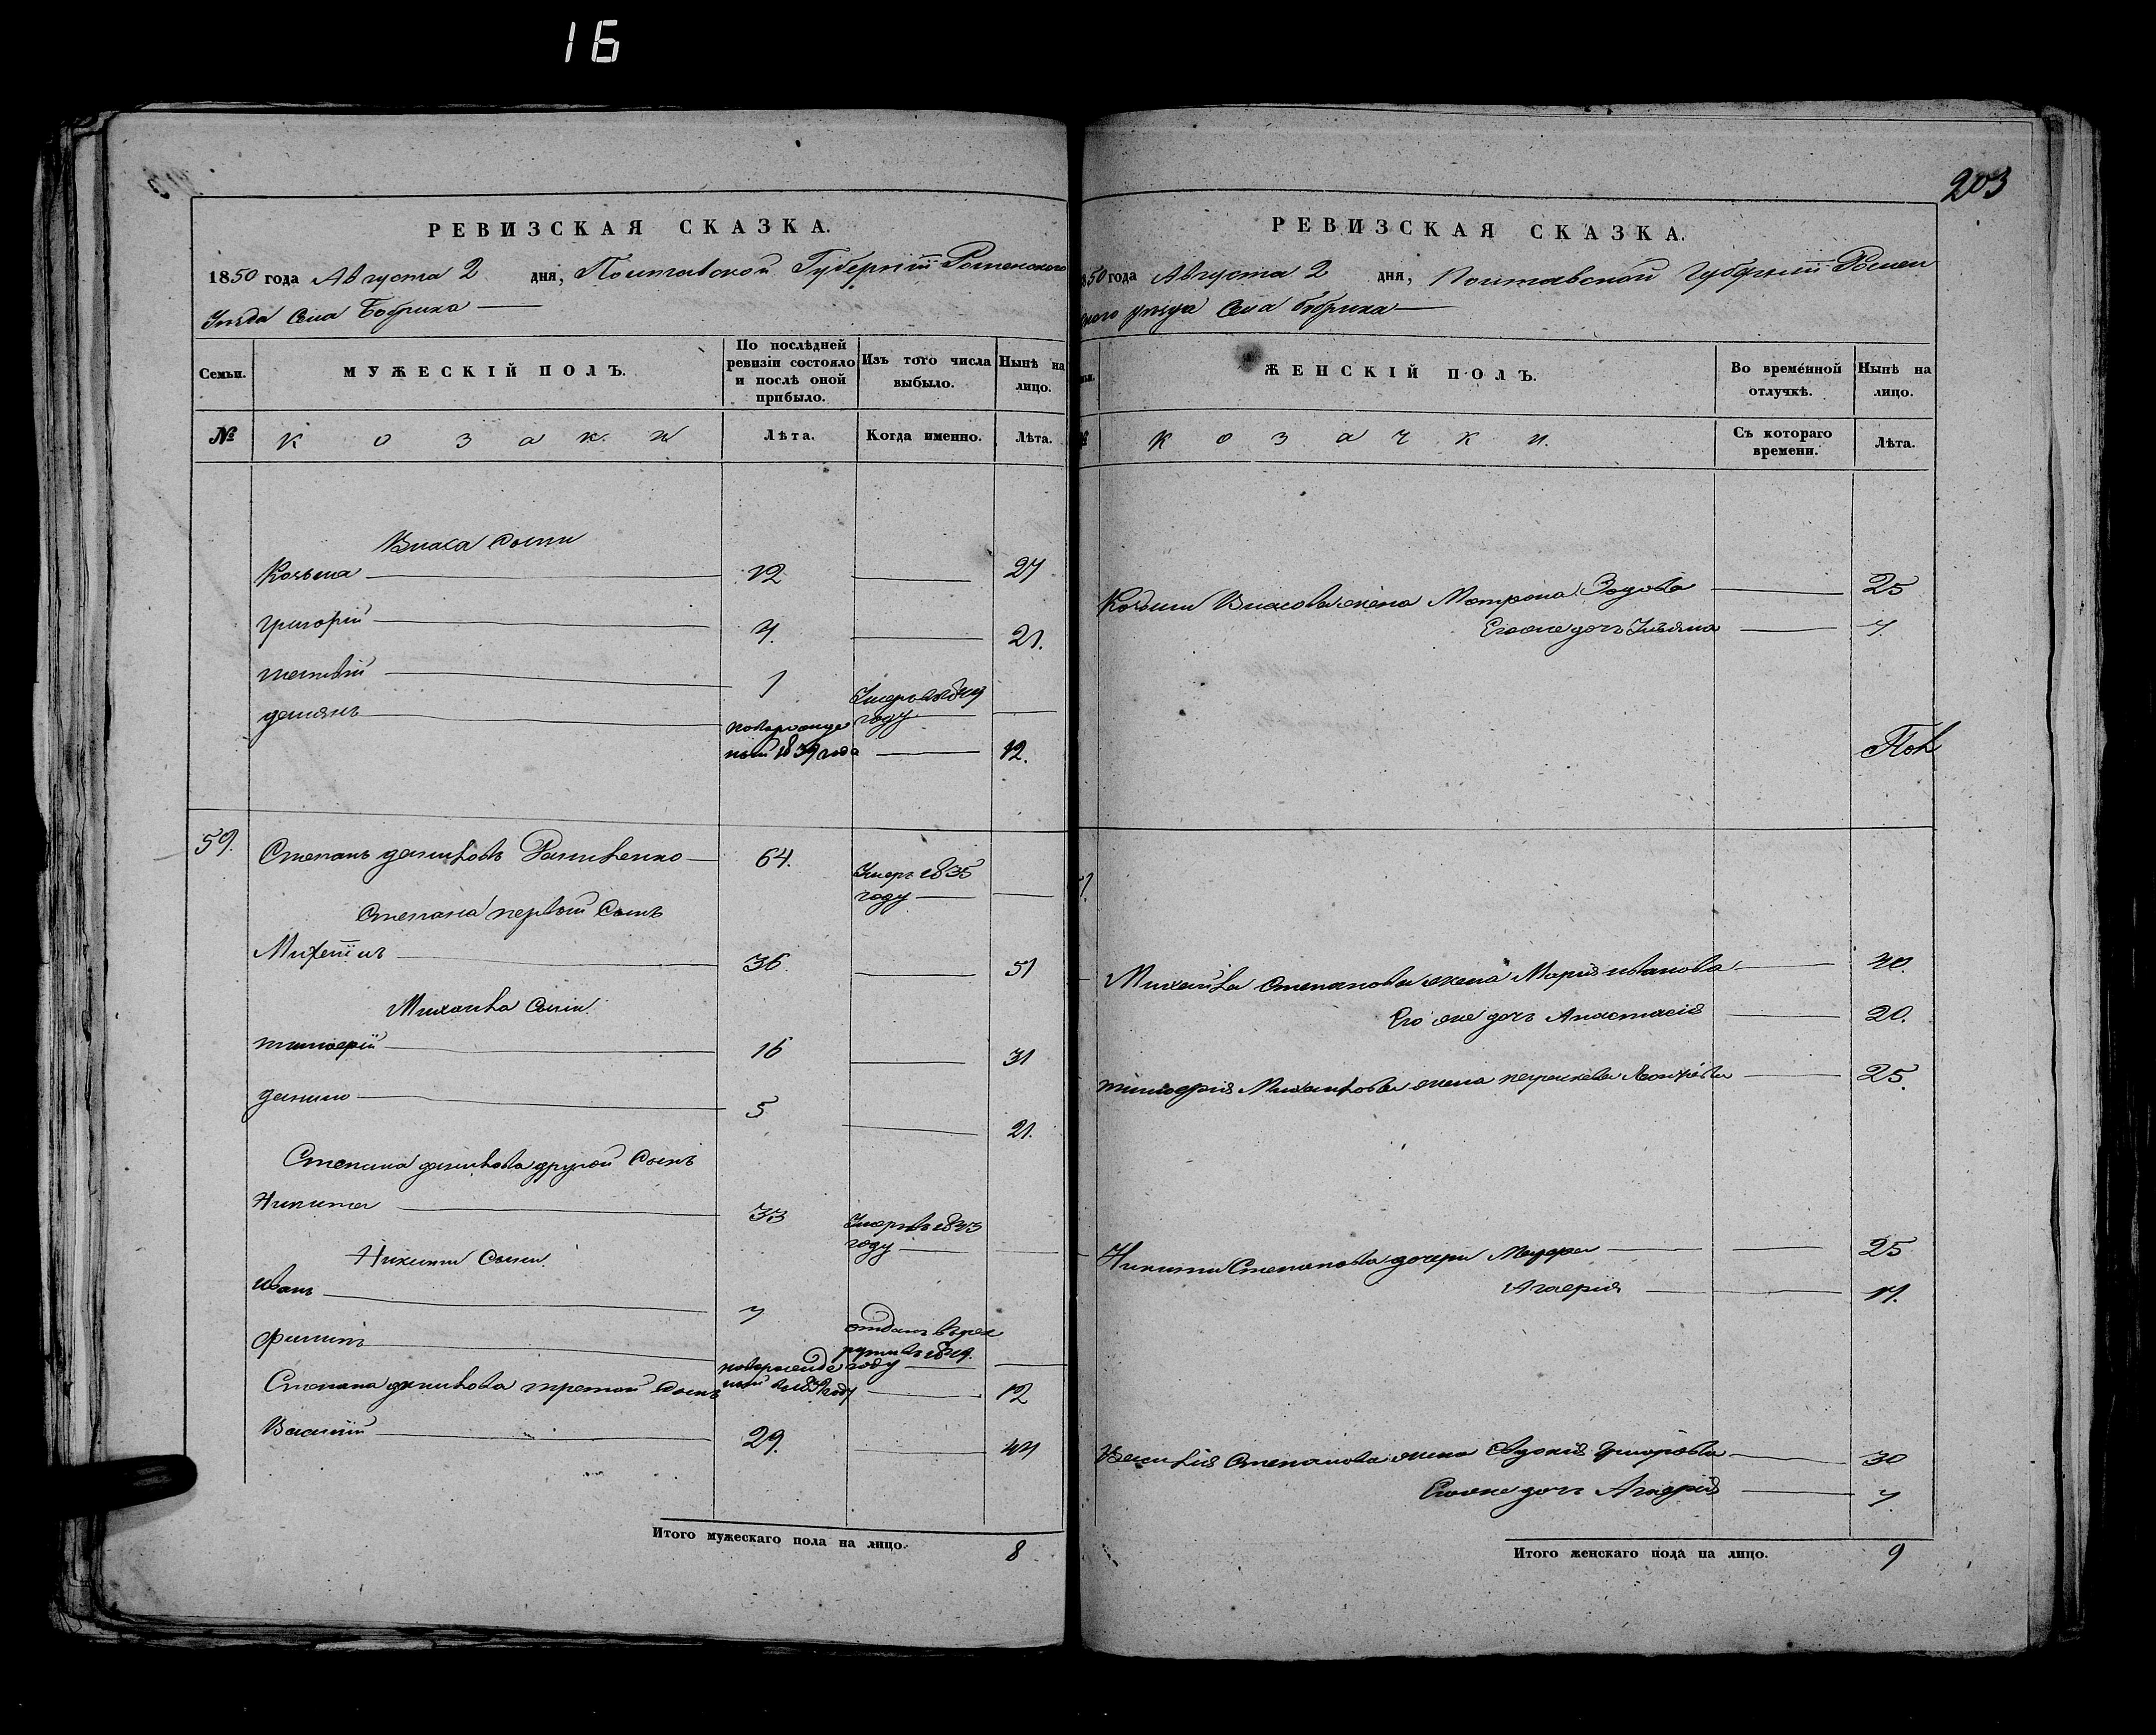 16
203
РЕВИЗСКАЯ СКАЗКА.
1850 года Августа 2 дня, Полтавской Губерніи Роменского
Уезда Села Бобрика
Семьи.
МУЖЕСКІЙ ПОЛЪ.
По послѣдней ревизіи состояло и послѣ оной прибыло.
Изъ того числа выбыло.
Нынѣ на лицо.
№
козаки
Лѣта.
Когда именно.
Лѣта.
Власа сыни
Козьма 12 27
Григорій 4. 21.
1 Умеръ году
Демянъ новорожде ный 1839 года 12.
59. Степанъ Даниловъ 64. Умеръ 1835 году
Степана первый сынъ
Михаилъ 36. 51
Михаила сыни.
Тимоѳей 16 31
Данило 5 21.
Степана Данилова другой сынъ
Никита 33 Умеръ в 1843 году
Никиты сыни.
Иванъ 7 отданъ в рек руты в 1849. году
Филипъ новорожде ный в 1839 году 12
Степана Данилова третой сынъ
Василий 29. 44
Итого мужескаго пола на лицо. 8
РЕВИЗСКАЯ СКАЗКА.
1850 года Августа 2 дня, Полтавской Губерніи Ромен
ского уезда Села Бобрика
ЖЕНСКІЙ ПОЛЪ.
Во временной отлучкѣ.
Нынѣ на лицо.
козачки.
Съ котораго времени.
Лѣта.
Козьми Власова жена Матрона 25
Его же дочь Ульяна 7.
Михаила Степанова жена Марія Иванова 40.
Его же дочь Анастасія 20.
Тимоѳея Михаилова жена 25.
Никиты Степанова дочери 25
17.
Василія Степанова жена Евдокія Григорьева 30
Его же дочь 7.
Итого женскаго пола на лицо. 9